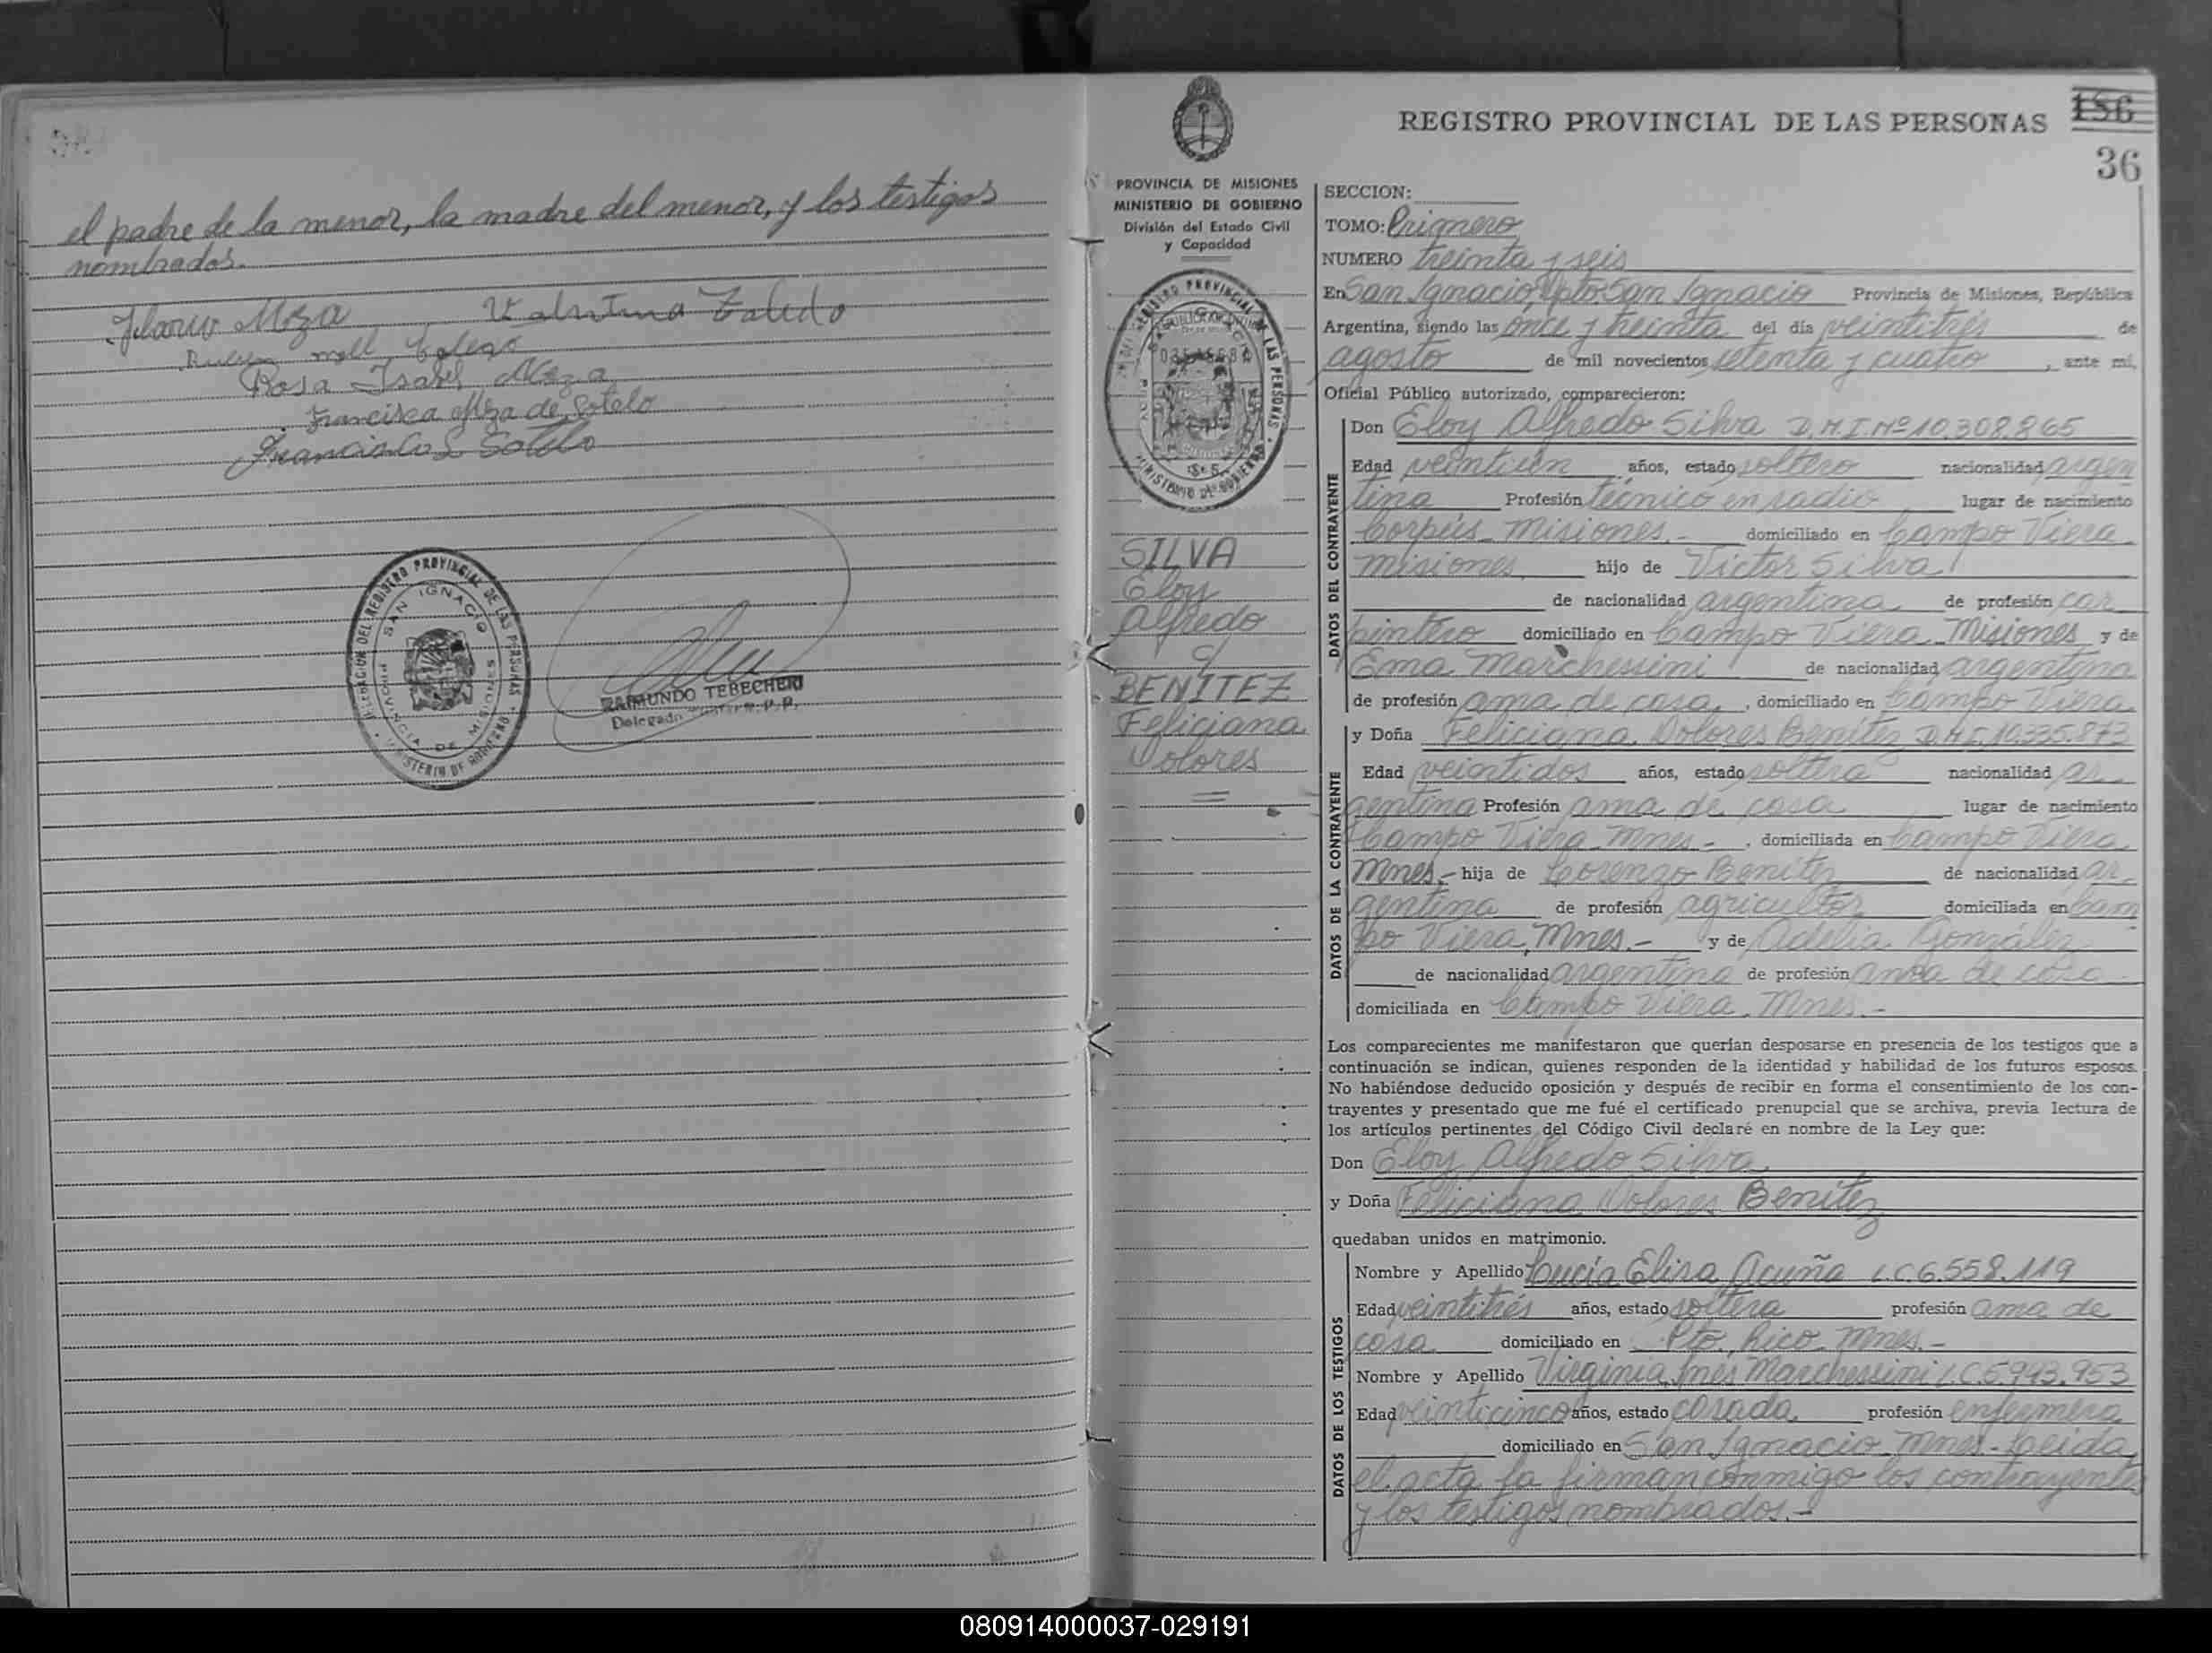 el padre de la menor, la madre del menor, y los testigos
nombrados.
Ilario Meza
Rosa Isabel Meza
Francisca Meza de Sotelo
Francisco S. Sotelo
DELEGACION DEL REGISTRO PROVINCIAL DE LAS PERSONAS
SAN IGNACIO
PROVINCIA DE MISIONES
MINISTERIO DE GOBIERNO
RAIMUNDO TEBECHERI
Delegado R. P. P.
REGISTRO PROVINCIAL DE LAS PERSONAS
156
36
PROVINCIA DE MISIONES
MINISTERIO DE GOBIERNO
División del Estado Civil
y Capacidad
SILVA
Eloy
Alfredo
c/
BENITEZ
Feliciana
Dolores
SECCION:
TOMO: Primero
NUMERO treinta y seis
En San Ignacio, Dpto San Ignacio Provincia de Misiones, República
Argentina, siendo las once y treinta del día veintitrés de
agosto de mil novecientos setenta y cuatro, ante mí,
Oficial Público autorizado, comparecieron:
DATOS DEL CONTRAYENTE
Don Eloy Alfredo Silva D.N.I. Nº 10.308.865
Edad veintiún años, estado soltero nacionalidad argen
tina Profesión técnico en radio lugar de nacimiento
Corpús - Misiones.- domiciliado en Campo Viera
Misiones hijo de Victor Silva
de nacionalidad argentina de profesión car
pintero domiciliado en Campo Viera - Misiones y de
Ema Marchessini de nacionalidad argentina
de profesión ama de casa, domiciliado en Campo Viera
DATOS DE LA CONTRAYENTE
y Doña Feliciana Dolores Benítez D.N.I. 10.335.873
Edad veintidos años, estado soltera nacionalidad ar
gentina Profesión ama de casa lugar de nacimiento
Campo Viera - Mnes.- , domiciliada en Campo Viera
Mnes.- hija de Lorenzo Benítez de nacionalidad ar
gentina de profesión agricultor domiciliada en Cam
po Viera, Mnes.- y de Adelia González
de nacionalidad argentina de profesión ama de casa
domiciliada en Campo Viera, Mnes.-
Los comparecientes me manifestaron que querían desposarse en presencia de los testigos que a
continuación se indican, quienes responden de la identidad y habilidad de los futuros esposos.
No habiéndose deducido oposición y después de recibir en forma el consentimiento de los con-
trayentes y presentado que me fué el certificado prenupcial que se archiva, previa lectura de
los artículos pertinentes del Código Civil declaré en nombre de la Ley que:
Don Eloy Alfredo Silva
y Doña Feliciana Dolores Benítez
quedaban unidos en matrimonio.
DATOS DE LOS TESTIGOS
Nombre y Apellido Lucía Elisa Acuña L.C. 6.558.119
Edad veintitrés años, estado soltera profesión ama de
casa domiciliado en Pto. Rico Mnes.-
Nombre y Apellido Virginia Inés Marchessini L.C. 5.943.953
Edad veinticinco años, estado casada profesión enfermera
domiciliado en San Ignacio Mnes - Leída
el acta la firman conmigo los contrayentes
y los testigos nombrados.-
080914000037-029191